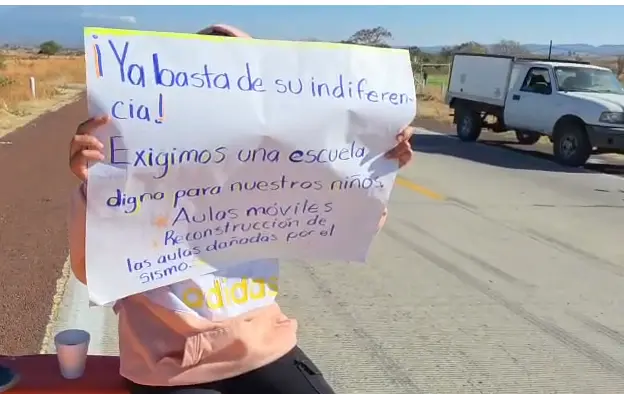 ¡Ya basta de su indiferen-
cia!
Exigimos una escuela
digna para nuestros niños
Aulas móviles
Reconstrucción de
las aulas dañadas por el
sismo.
adidas